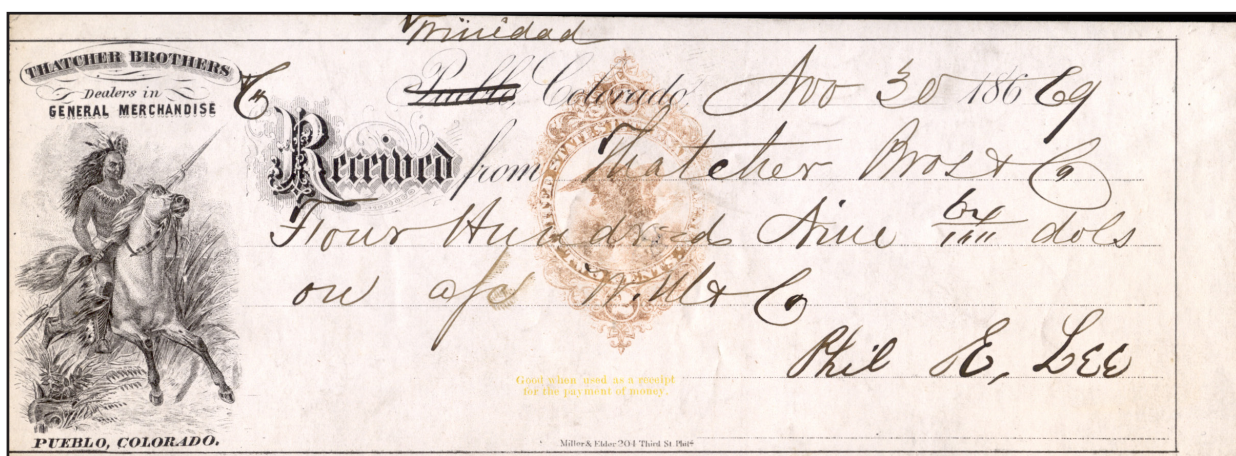 Trinidad
THATCHER BROTHERS
Dealers in
GENERAL MERCHANDISE
Pueblo, Colorado, Nov 30 186 69
Received from Thatcher Bros & Co
Four Hundred Nine dols
on a/c W. M & Co
Phil E, Lee
UNITED STATES INTERNAL REVENUE
TWO CENTS
Good when used as a receipt
for the payment of money.
PUEBLO, COLORADO.
Miller & Elder 204 Third St Phila